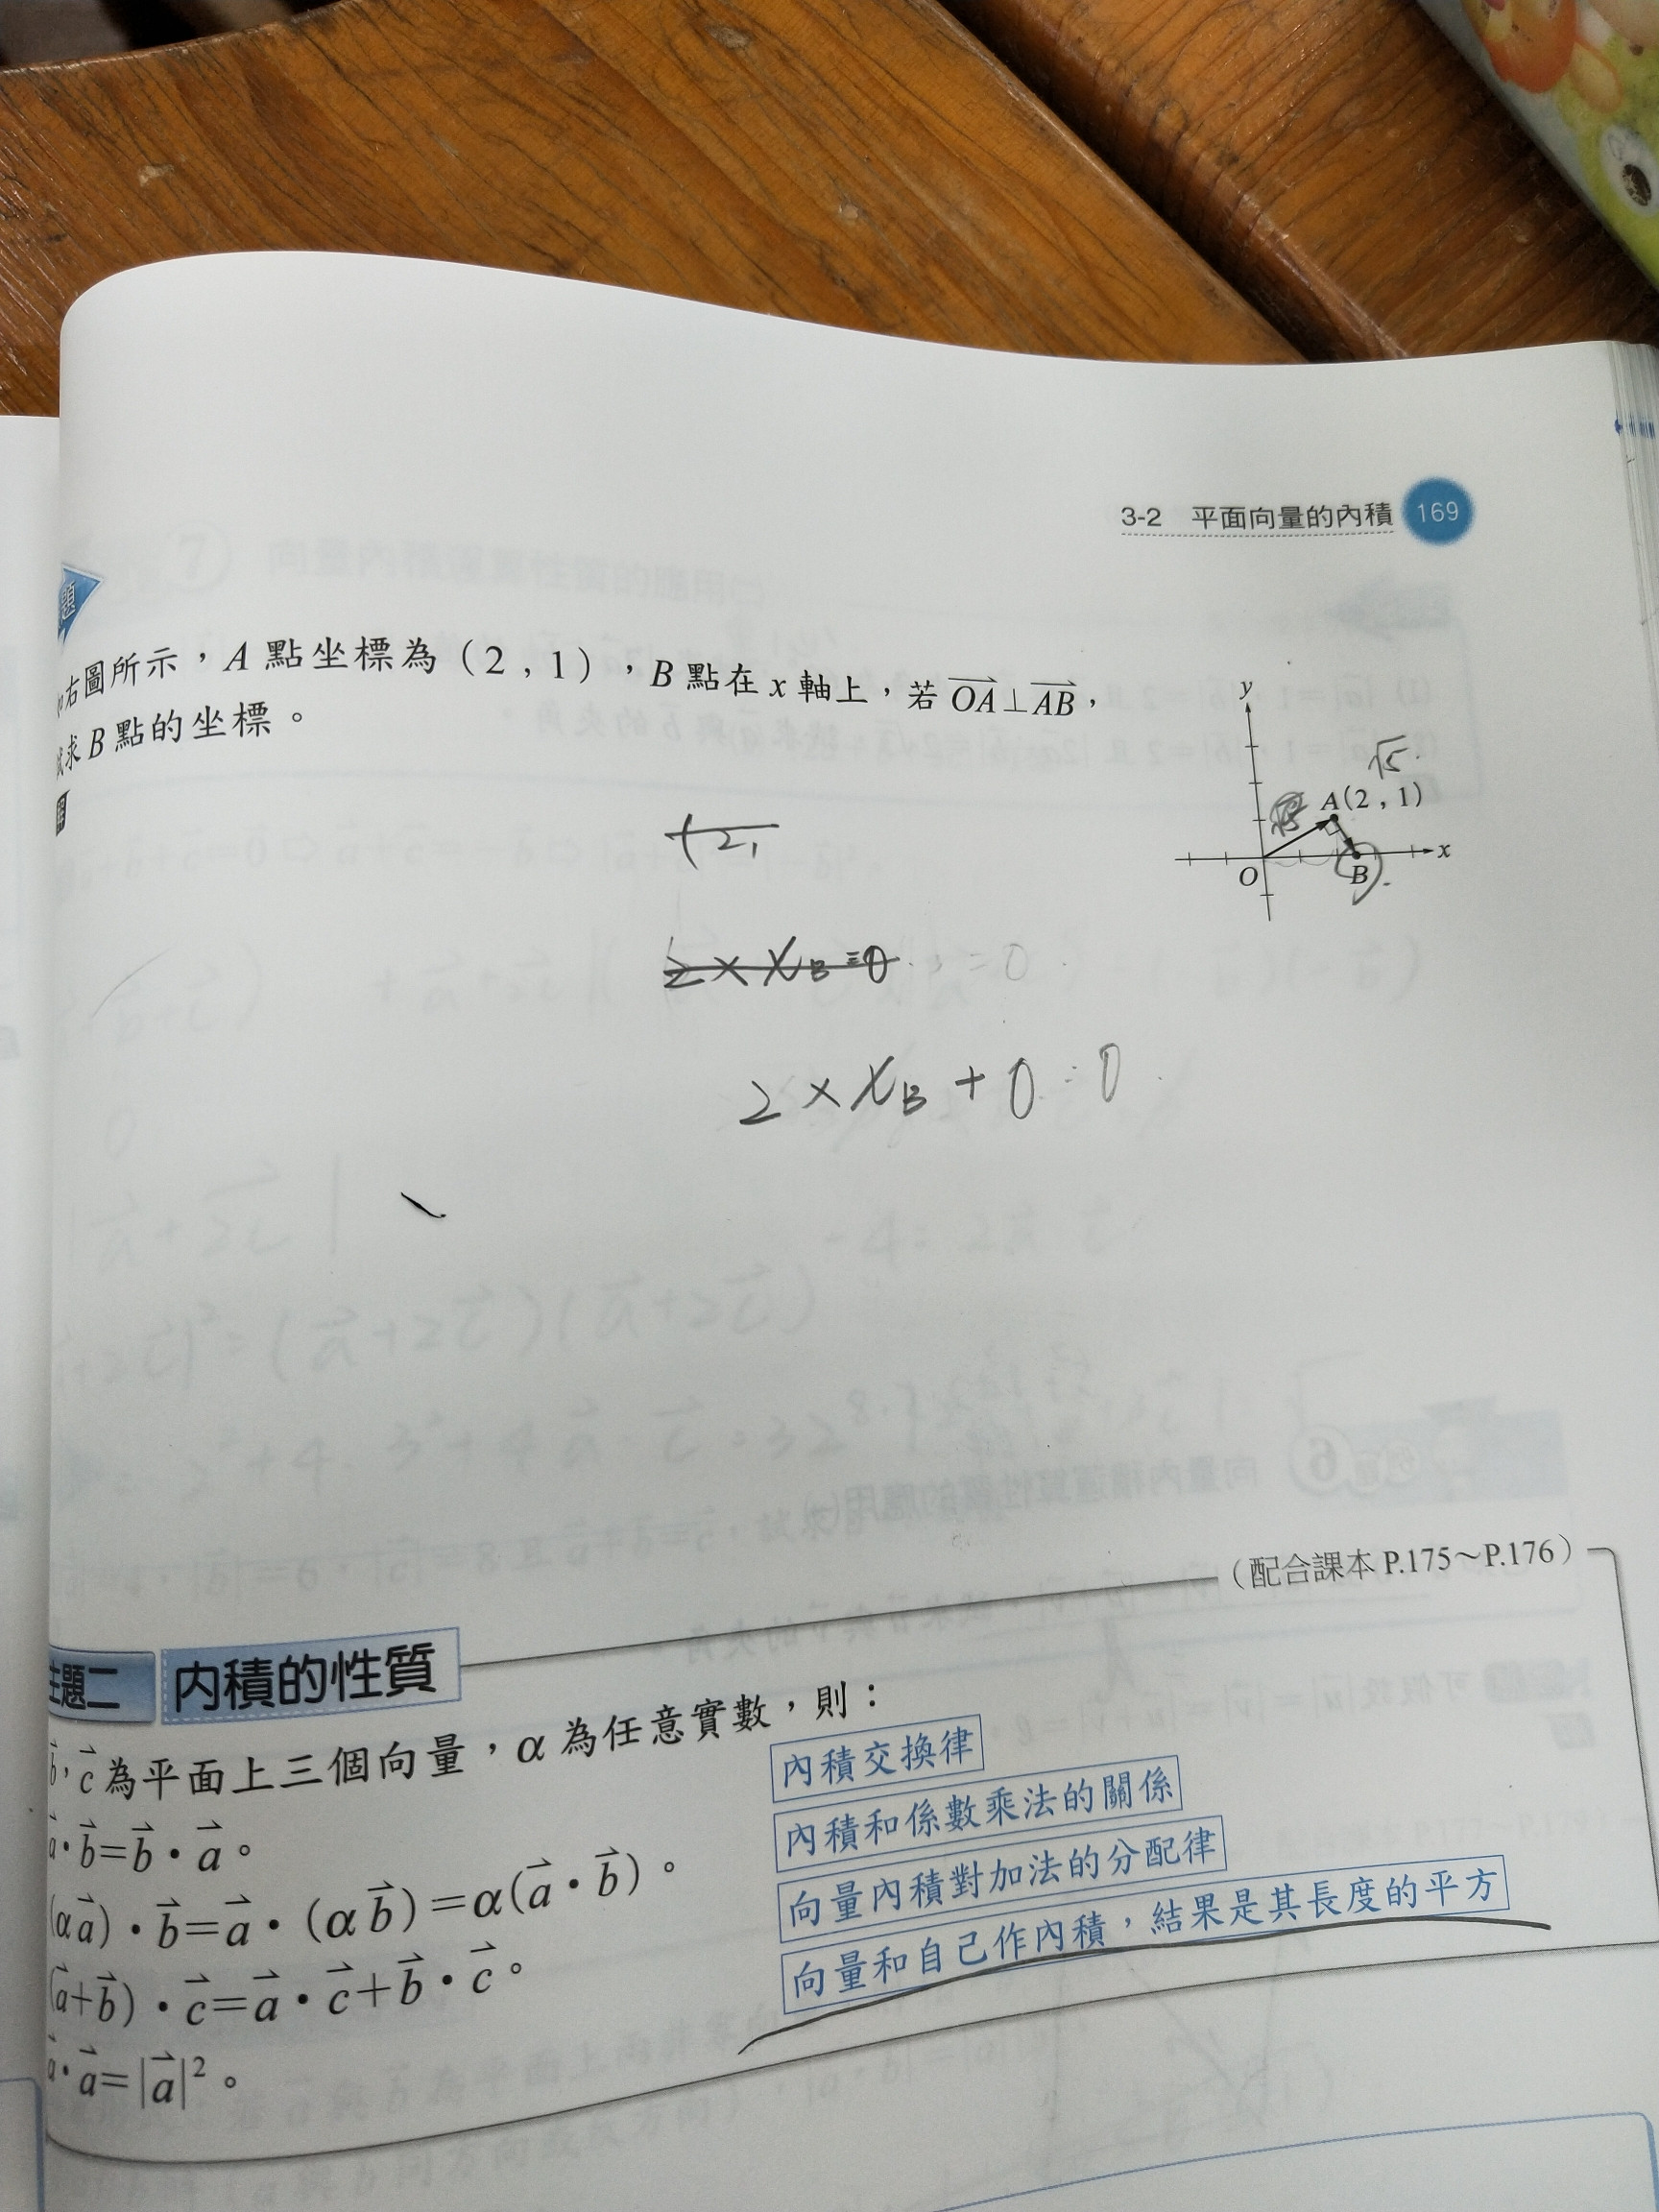 3-2 平面向量的內積 169
題
右圖所示，A 點坐標為（2 , 1），B 點在 x 軸上，若 OA⊥AB，
試求 B 點的坐標。
解
y
√5
A(2 , 1)
O
B
x
2×X_B=0
2×X_B+0=0
（配合課本 P.175～P.176）
主題二 內積的性質
b，c 為平面上三個向量，α 為任意實數，則：
a·b=b·a。
內積交換律
(αa)·b=a·(αb)=α(a·b)。
內積和係數乘法的關係
(a+b)·c=a·c+b·c。
向量內積對加法的分配律
a·a=|a|²。
向量和自己作內積，結果是其長度的平方